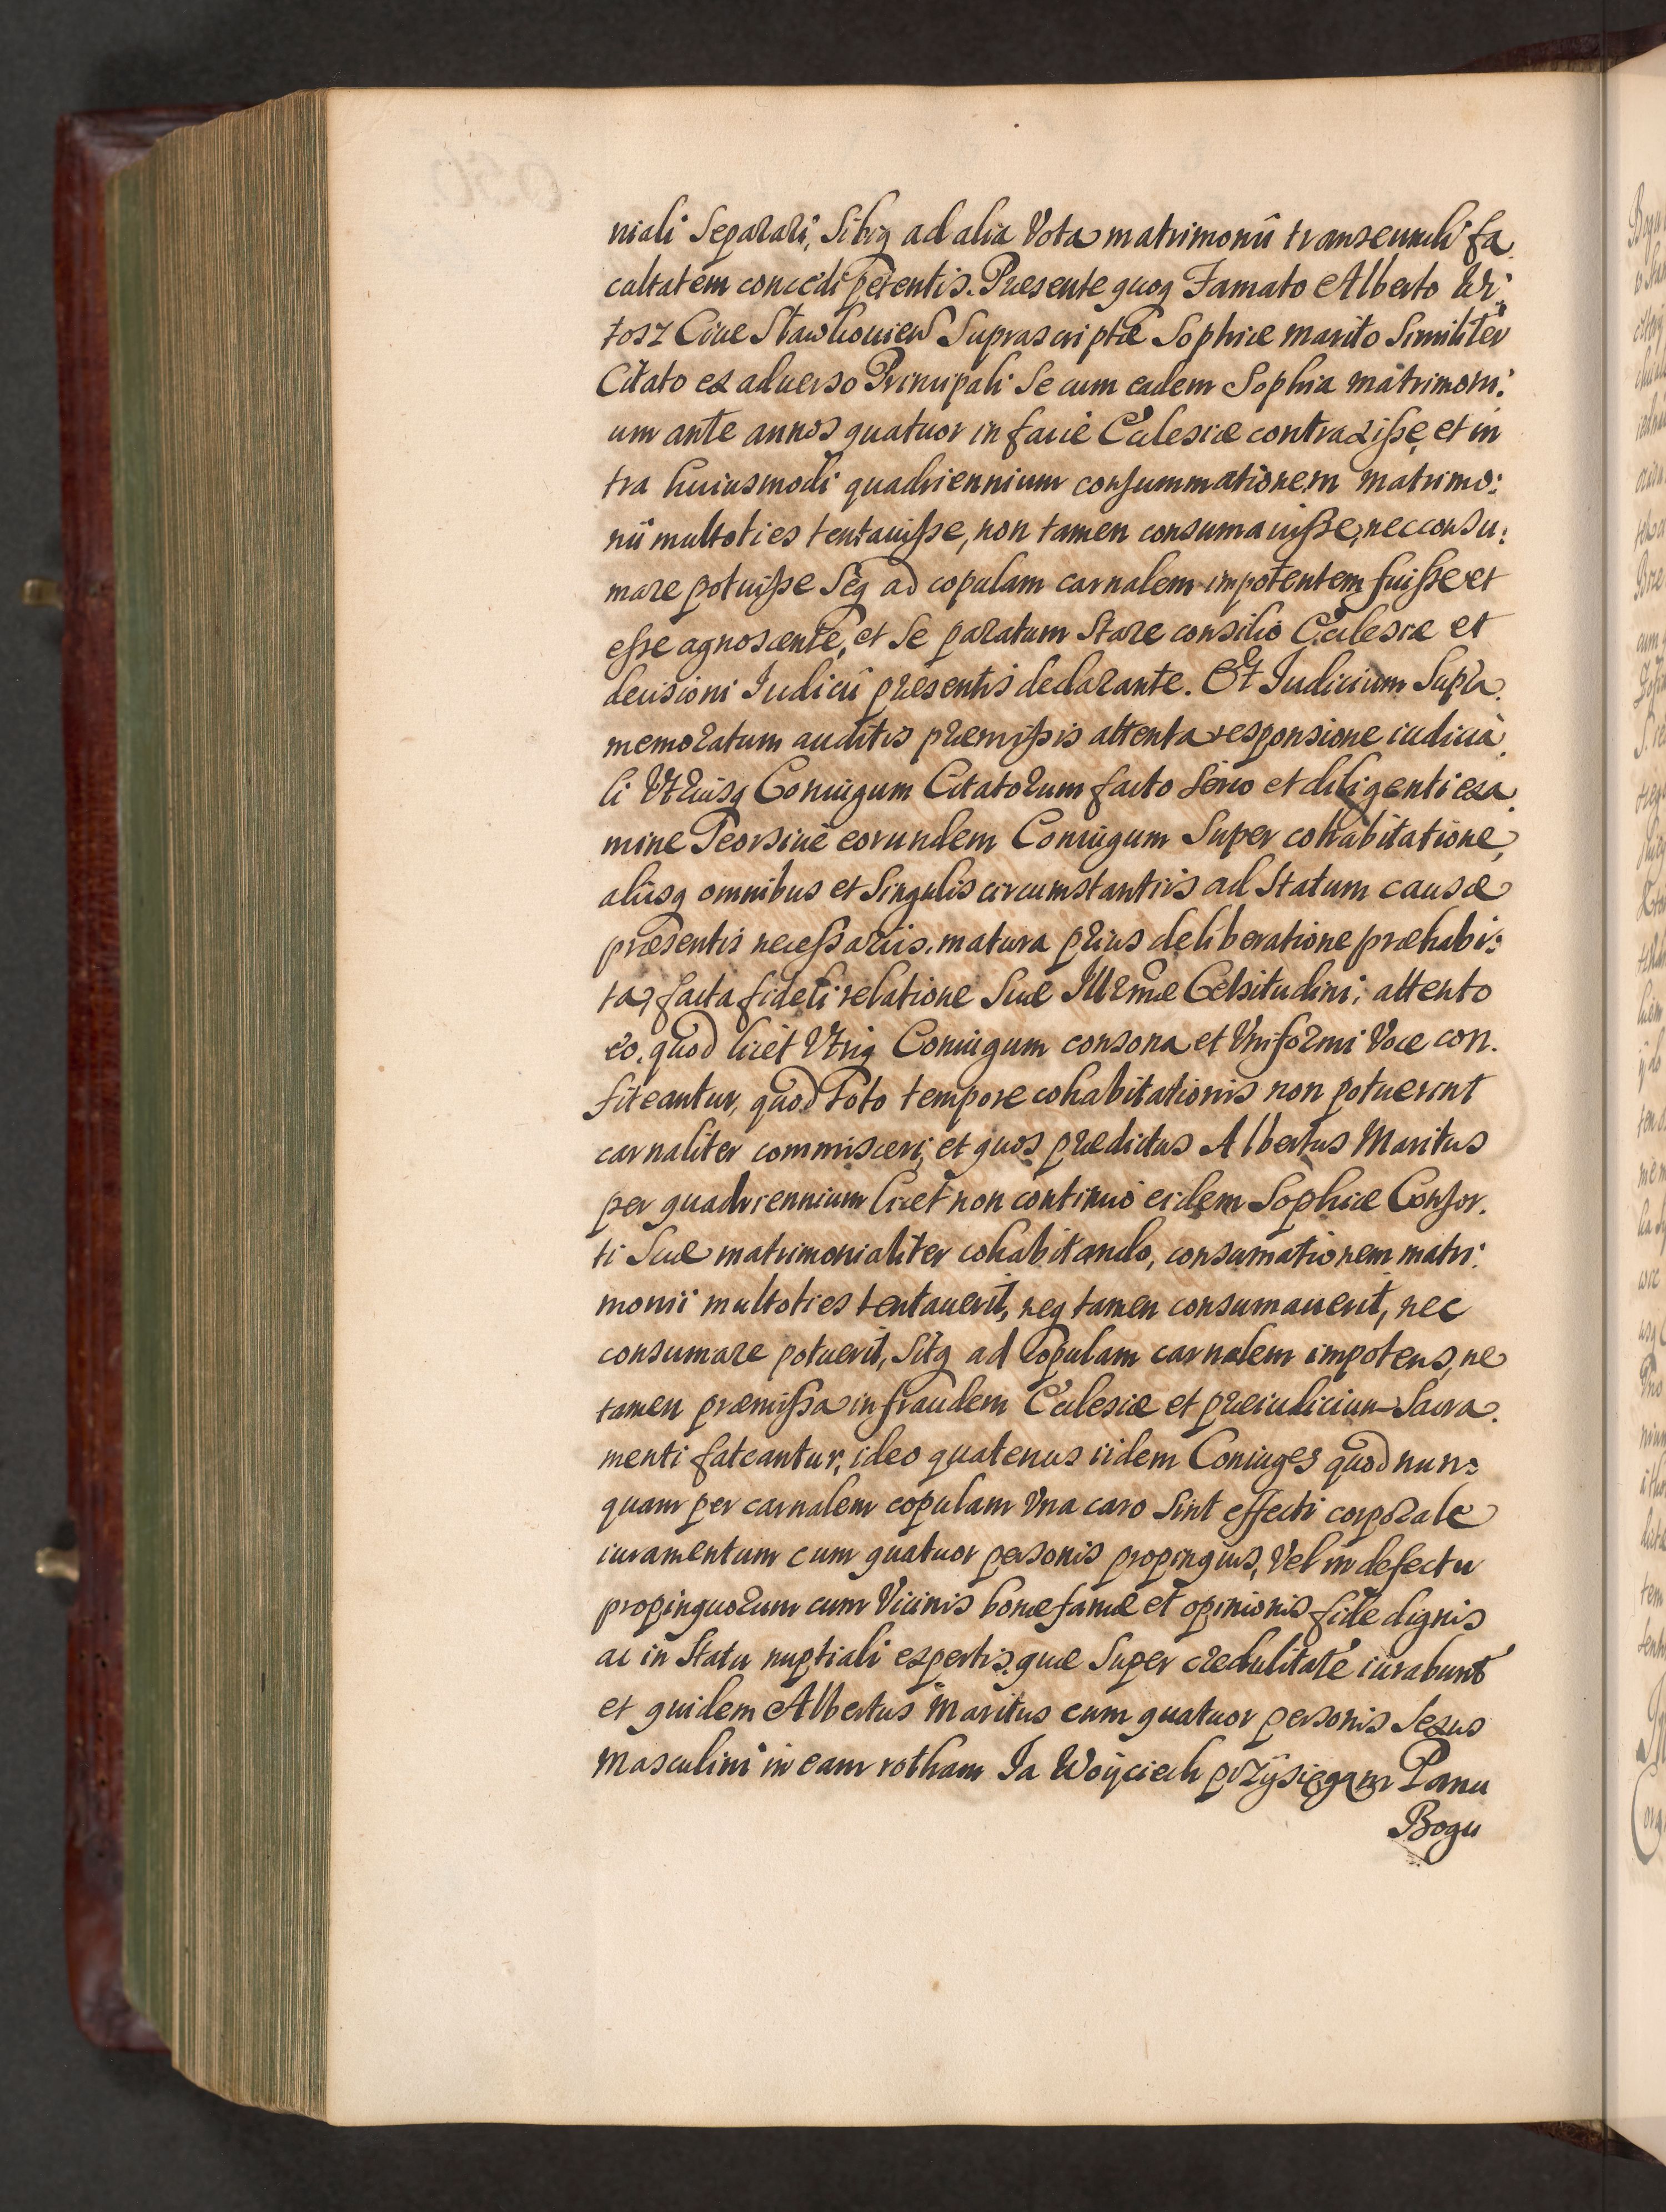 niali Separari, Sibiq ad alia Vota matrimonii transeundi fa.
cultatem concedi petentis. Præsente quoq Famato Alberto Wi:
tosz Ciue Stawkouien Suprascriptæ Sophiæ marito Similiter
Citato ex aduerso Principali Se cum eadem Sophia matrimoni:
um ante annos quatuor in facie Ecclesiæ contraxisse, et in
tra huiusmodi quadriennium consummationem matrimo:
nii multoties tentauisse, non tamen consumauisse, nec consu:
mare potuisse Seq ad copulam carnalem impotentem fuisse et
esse agnoscente, et Se paratum Stare consilio Ecclesiæ et
decisioni Iudicii præsentis declarante. Et Iudicium Supra.
memoratum auditis præmissis attenta responsione iudicia.
li Vtriusq Coniugum Citatorum facto Serio et diligenti exa.
mine Seorsiue eorundem Coniugum Super cohabitatione,
aliisq omnibus et Singulis circumstantiis ad Statum causæ
præsentis necessariis, matura prius deliberatione præhabi:
ta, facta fideli relatione Suæ Illrmæ Celsitudini; attento
eo, quod licet Vtriq Coniugum consona et Vniformi Voce con.
fiteantur, quod toto tempore cohabitationis non potuerint
carnaliter commisceri, et quos prædictus Albertus Maritus
per quadriennium licet non continuo eidem Sophiæ Consor.
ti Suæ matrimonialiter cohabitando, consumationem matri:
monii multoties tentauerit, neq tamen consumauerit, nec
consumare potuerit, Sitq ad Copulam carnalem impotens, ne
tamen præmissa in fraudem Ecclesiæ et præiudicium Sacra.
menti fateantur, ideo quatenus iidem Coniuges quod nun:
quam per carnalem copulam Vna caro Sint effecti corporale
iuramentum cum quatuor personis propinquis, Vel in defectu
propinquorum cum Vicinis bonæ famæ et opinionis fide dignis
ac in Statu nuptiali expertis, quæ Super credulitate iurabunt
et quidem Albertus Maritus cum quatuor personis Sexus
Masculini in eam rotham Ia Woyciech przysięgam Panu
Bogu